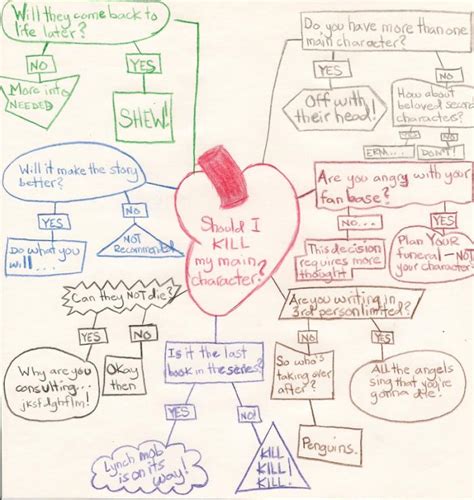 Will they come back to
life later?
NO
YES
More info
NEEDED
SHEW!
Do you have more than one
main character?
YES
NO
Off with
their head!
How about
beloved secondary
characters?
YES
NO
ERM....
DON'T!
Will it make the story
better?
YES
NO
Do what you
will...
NOT
Recommended
Should I
KILL
my main
character?
Are you angry with your
fan base?
NO...
YES
This decision
requires more
thought
Plan YOUR
funeral - NOT
your character's
Can they NOT die?
YES
NO
Why are you
consulting...
jksfdghflm!
Okay
then
Is it the last
book in the series?
YES
NO!
Lynch mob
is on its
way!
KILL
KILL
KILL!
Are you writing in
3rd person limited?
NO
YES
So who's
taking over
after??
Penguins.
All the angels
sing that you're
gonna die!